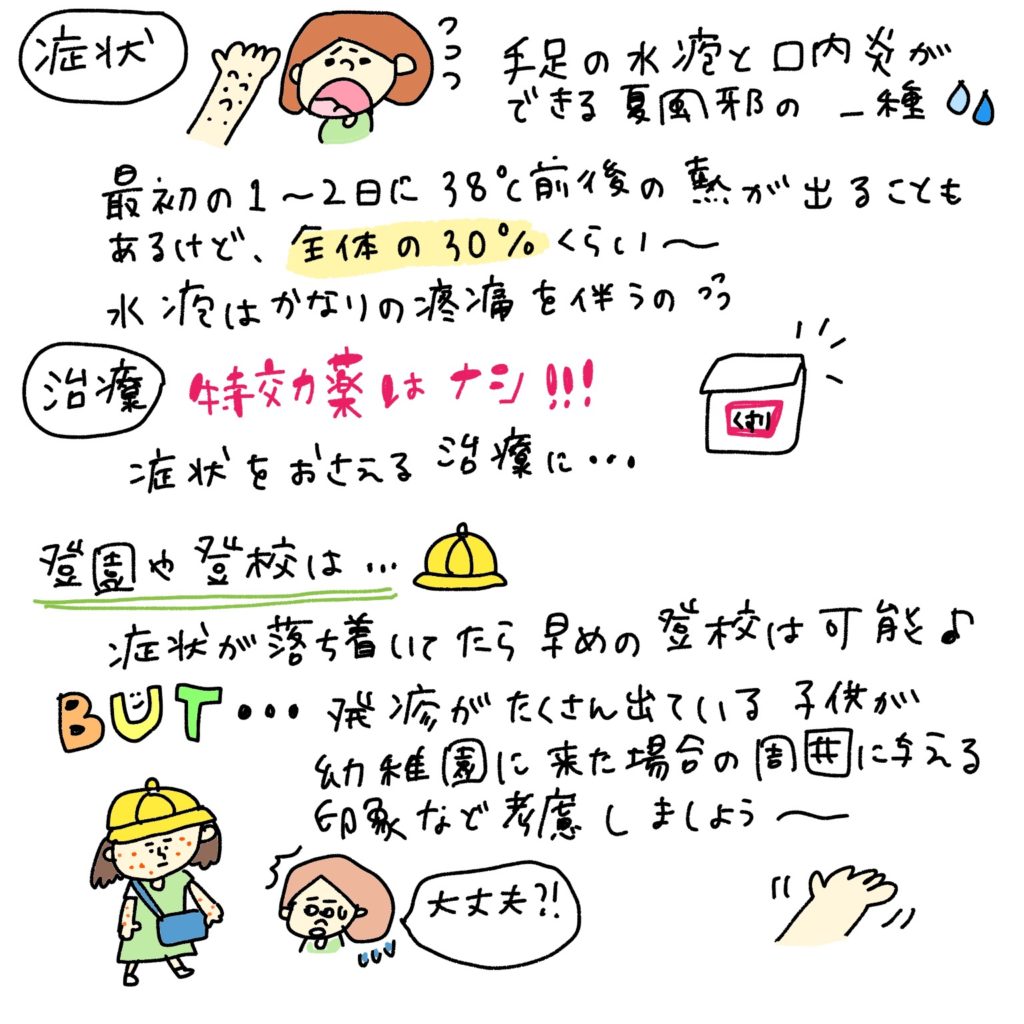 症状
手足の水疱と口内炎が
できる夏風邪の一種
最初の1〜2日に38℃前後の熱が出ることも
あるけど、全体の30%くらい〜
水疱はかなりの疼痛を伴うの
治療
特効薬はナシ!!!
くすり
症状をおさえる治療に…
登園や登校は…
症状が落ち着いてたら早めの登校は可能♪
BUT…発疹がたくさん出ている子供が
幼稚園に来た場合の周囲に与える
印象など考慮しましよう〜
大丈夫?!